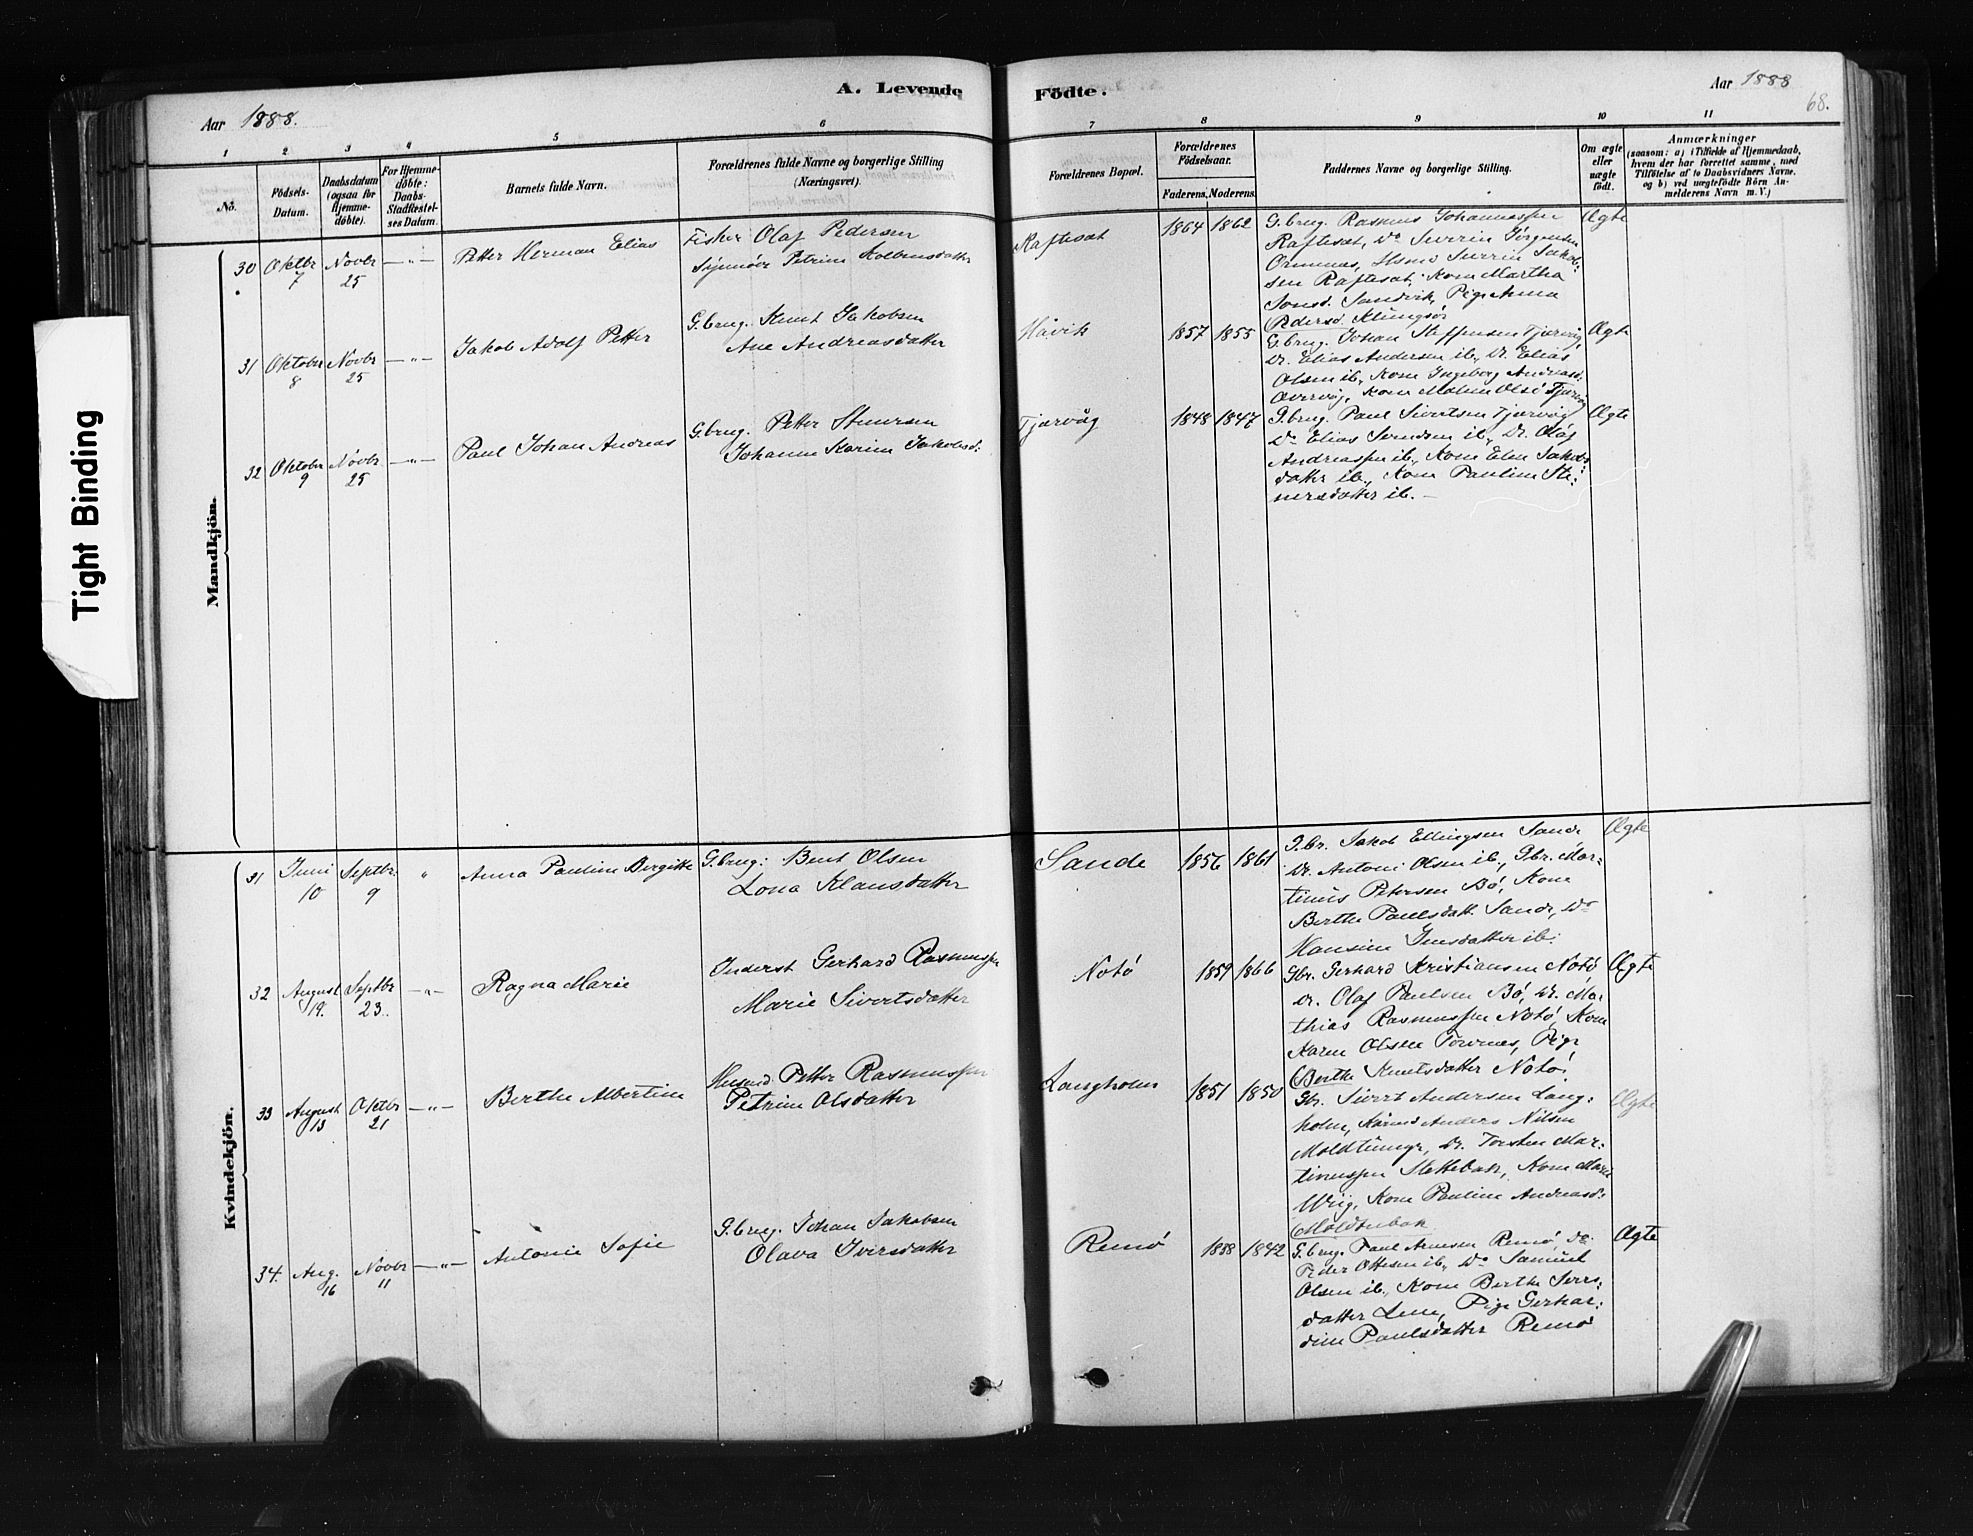 Tight Binding
A. Levende
Födte.
Aar 1888.
Aar 1888
68.
1 2 3 4 5 6 7 8 9 10 11
No.
Födsels-
Datum.
Daabsdatum
(ogsaa for
Hjemme-
døbte).
For Hjemme-
döbte:
Daabs-
Stadfæstel-
ses Datum.
Barnets fulde Navn.
Forældrenes fulde Navne og borgerlige Stilling
(Næringsvei).
Forældrenes Bopæl.
Forældrenes
Födselsaar.
Faderens. Moderens.
Faddernes Navne og borgerlige Stilling.
Om ægte
eller
uægte
födt.
Anmærkninger
(saasom: a) i Tilfælde af Hjemmedaab,
hvem der har forrettet samme, med
Tilföielse af to Daabsvidners Navne,
og b) ved uægtefödte Börn An-
melderens Navn m. V.)
Mandkjön.
30 Oktbr 7 Novbr 25 —„— Petter Herman Elias
Fisker Olaf Pedersen
Synnöve Petrine Kolbensdatter
Raftesæt 1864 1862
G.brug. Rasmus Johannessen
Raftesæt, Do Severin Jörgensen
Ormnæs, Severin Jakob-
sen Raftesæt, Kone Martha
Jonsd. Sandvik, Pige Anna
Pedersd. Klungsör
Ægte
31 Oktober 8 Novbr 25 —„— Jakob Adolf Petter
G.brug. Knut Jakobsen
Ane Andreasdatter
Håvik 1857 1855
G.brug. Johan Steffensen Tjærvåg,
Do. Elias Andersen ib., Do. Elias
Olsen ib., Kone Ingeborg Andreasd.
Kone Malene Olsd Tjærvåg
Ægte
32 Oktober 9 Novbr 25 —„— Paul Johan Andreas
G.brug. Petter Stenersen
Johanne Karine Jakobsd.
Tjærvåg 1848 1847
G.brug. Paul Sivertsen Tjærvåg
Do Elias Svendsen ib., Do. Olaf
Andreassen ib., Kone Elen Jakobs
datter ib., Kone Pauline Ste-
nersdatter ib. —
Ægte
Kvindekjön.
31 Juni 10 Septbr. 9 „ Anna Pauline Bergitte
G.brug: Bent Olsen
Lona Klausdatter
Sande 1856 1861
G.br. Jakob Ellingsen Sande
Do. Antoni Olsen ib., Gbr. Mar-
tinus Petersen Bö, Kone
Berthe Paulsdatt. Sande, Do
Hansine Jensdatter ib.
Ægte
32 August 19. Septbr 23. —„— Ragna Marie
Inderst Gerhard Rasmussen
Marie Sivertsdatter
Notö 1859 1866
Gbr. Gerhard Kristiansen Notö
Do. Olaf Paulsen Bö, Do. Ma-
thias Rasmussen Notö, Kone
Karen Olsen Pige
Berthe Knutsdatter Notö.
Ægte
33 August 13 Oktbr 21 —„— Berthe Albertine
Husmd. Petter Rasmussen
Petrine Olsdatter
Langholm 1851 1850
Gbr. Sivert Andersen Lang-
holm, Anders Nilsen
Do. Torsten Mar-
tinussen Slettebak, Kone Marie
Kone Pauline Andreasd.
Moldtubak
Ægte
34. Aug. 16 Novbr 11 —„— Antonie Sofie
G.brug. Johan Jakobsen
Olava Iversdatter
Remö 1838 1842
G.brug. Paul Arnesen Remö, Do
Peder Ottesen ib., Do Samuel
Olsen ib., Kone Berthe Sivers-
datter Pige Gerhar-
dine Paulsdatter Remö
Ægte